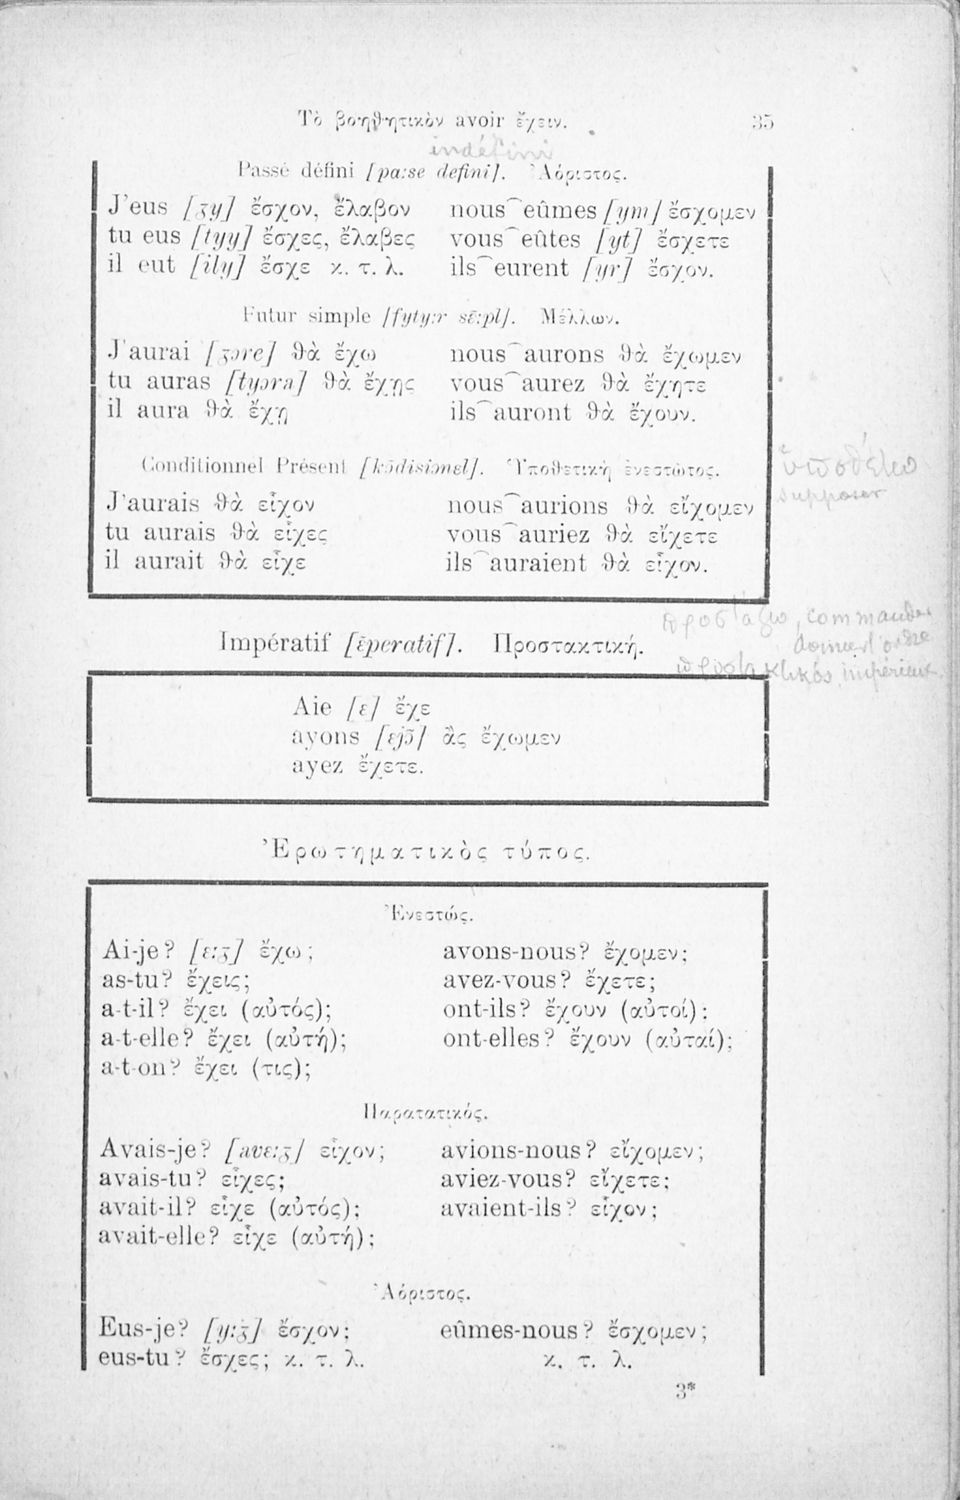 Τὸ βοηθητικὸν avoir ἔχειν. 35
indéfini
Passé défini [pa:se defini]. Ἀόριστος.
J'eus [ʒy] ἔσχον, ἔλαβον nous‿eûmes [ym] ἔσχομεν
tu eus [tyy] ἔσχες, ἔλαβες vous‿eûtes [yt] ἔσχετε
il eut [ily] ἔσχε κ. τ. λ. ils‿eurent [yr] ἔσχον.
Futur simple [fyty:r sɛ̃:pl]. Μέλλων.
J'aurai [ʒɔre] θὰ ἔχω nous‿aurons θὰ ἔχωμεν
tu auras [tyɔra] θὰ ἔχῃς vous‿aurez θὰ ἔχητε
il aura θὰ ἔχῃ ils‿auront θὰ ἔχουν.
Conditionnel Présent [kɔ̃disiɔnɛl]. Ὑποθετικὴ ἐνεστῶτος.
ὑποθέτω
supposer
J'aurais θὰ εἶχον nous‿aurions θὰ εἴχομεν
tu aurais θὰ εἶχες vous‿auriez θὰ εἴχετε
il aurait θὰ εἶχε ils‿auraient θὰ εἶχον.
προστάζω, commander
donner l'ordre
Impératif [ɛ̃peratif]. Προστακτική.
προστακτικός, impérieux
Aie [ɛ] ἔχε
ayons [ɛjɔ̃] ἂς ἔχωμεν
ayez ἔχετε.
Ἐρωτηματικὸς τύπος.
Ἐνεστώς.
Ai-je? [ɛ:ʒ] ἔχω; avons-nous? ἔχομεν;
as-tu? ἔχεις; avez-vous? ἔχετε;
a-t-il? ἔχει (αὐτός); ont-ils? ἔχουν (αὐτοί);
a-t-elle? ἔχει (αὐτή); ont-elles? ἔχουν (αὐταί);
a-t-on? ἔχει (τις);
Παρατατικός.
Avais-je? [avɛ:ʒ] εἶχον; avions-nous? εἴχομεν;
avais-tu? εἶχες; aviez-vous? εἴχετε;
avait-il? εἶχε (αὐτός); avaient-ils? εἶχον;
avait-elle? εἶχε (αὐτή);
Ἀόριστος.
Eus-je? [y:ʒ] ἔσχον; eûmes-nous? ἔσχομεν;
eus-tu? ἔσχες; κ. τ. λ. κ. τ. λ.
3*